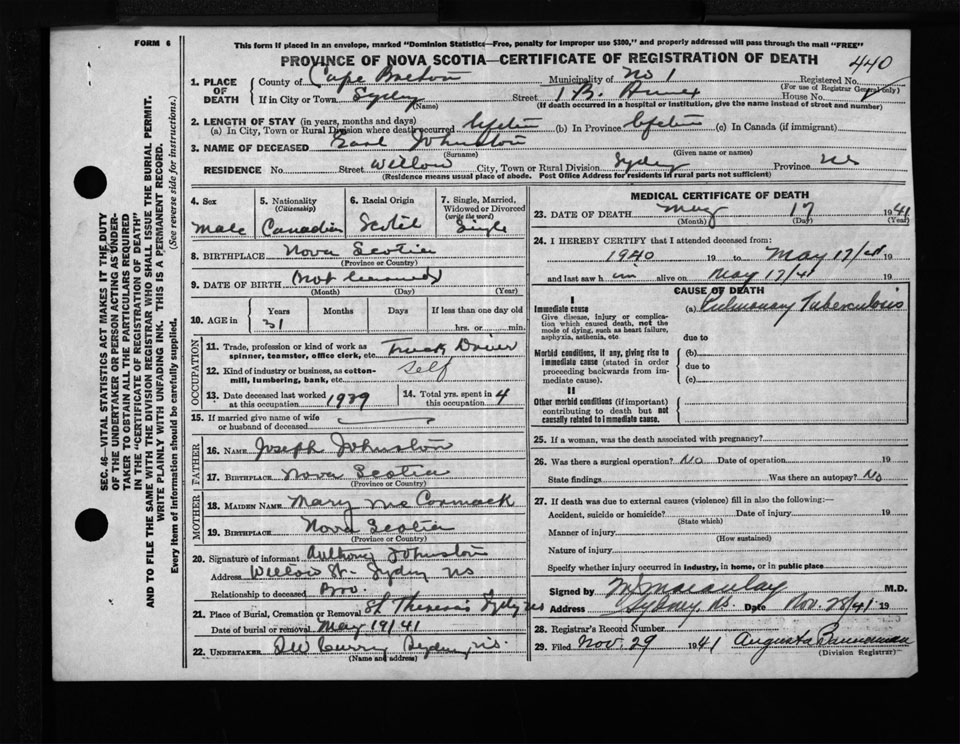 FORM 6
This form if placed in an envelope, marked "Dominion Statistics—Free, penalty for improper use $300," and properly addressed will pass through the mail "FREE"
PROVINCE OF NOVA SCOTIA—CERTIFICATE OF REGISTRATION OF DEATH
440
1. PLACE OF DEATH
County of Cape Breton Municipality of No 1 Registered No.
(For use of Registrar General only)
If in City or Town Sydney Street T. B. Annex House No.
(Name)
(If death occurred in a hospital or institution, give the name instead of street and number)
2. LENGTH OF STAY (in years, months and days)
(a) In City, Town or Rural Division where death occurred Lifetime (b) In Province Lifetime (c) In Canada (if immigrant)
3. NAME OF DECEASED Earl Johnston
(Surname) (Given name or names)
RESIDENCE No. Street Willow City, Town or Rural Division Sydney Province NS
(Residence means usual place of abode. Post Office Address for residents in rural parts not sufficient)
4. Sex
Male
5. Nationality
(Citizenship)
Canadian
6. Racial Origin
Scotch
7. Single, Married, Widowed or Divorced
(write the word)
Single
8. BIRTHPLACE Nova Scotia
(Province or Country)
9. DATE OF BIRTH Not
(Month) (Day) (Year)
10. AGE in
Years Months Days If less than one day old
31 hrs. or min.
OCCUPATION
11. Trade, profession or kind of work as spinner, teamster, office clerk, etc. Truck Driver
12. Kind of industry or business, as cotton-mill, lumbering, bank, etc. Self
13. Date deceased last worked at this occupation 1939
14. Total yrs. spent in this occupation 4
15. If married give name of wife or husband of deceased
FATHER
16. NAME Joseph Johnston
17. BIRTHPLACE Nova Scotia
(Province or Country)
MOTHER
18. MAIDEN NAME Mary McCormack
19. BIRTHPLACE Nova Scotia
(Province or Country)
20. Signature of informant Anthony Johnston
Address Willow St. Sydney NS
Relationship to deceased Bro.
21. Place of Burial, Cremation or Removal St Theresa's Sydney NS
Date of burial or removal May 19/41
22. UNDERTAKER DW Curry Sydney, NS
(Name and address)
MEDICAL CERTIFICATE OF DEATH
23. DATE OF DEATH May 17 1941
(Month) (Day) (Year)
24. I HEREBY CERTIFY that I attended deceased from:
1940 19 to May 17/41 19
and last saw him alive on May 17/41 19
CAUSE OF DEATH
I
Immediate cause
Give disease, injury or complication which caused death, not the mode of dying, such as heart failure, asphyxia, asthenia, etc
(a) Pulmonary Tuberculosis
due to
Morbid conditions, if any, giving rise to immediate cause (stated in order proceeding backwards from immediate cause).
(b)
due to
(c)
II
Other morbid conditions (if important) contributing to death but not causally related to immediate cause.
25. If a woman, was the death associated with pregnancy?
26. Was there a surgical operation? No Date of operation 19
State findings Was there an autopsy? No
27. If death was due to external causes (violence) fill in also the following:—
Accident, suicide or homicide? Date of injury 19
(State which)
Manner of injury
(How sustained)
Nature of injury
Specify whether injury occurred in industry, in home, or in public place
Signed by Macaulay M.D.
Address Sydney, NS. Date Nov. 28/41 19
28. Registrar's Record Number
29. Filed Nov. 29 1941 Augusta Bannerman
(Division Registrar)
SEC. 46—VITAL STATISTICS ACT MAKES IT THE DUTY
OF THE UNDERTAKER OR PERSON ACTING AS UNDERTAKER TO OBTAIN ALL THE PARTICULARS REQUIRED
IN THE "CERTIFICATE OF REGISTRATION OF DEATH"
AND TO FILE THE SAME WITH THE DIVISION REGISTRAR WHO SHALL ISSUE THE BURIAL PERMIT.
WRITE PLAINLY WITH UNFADING INK. THIS IS A PERMANENT RECORD.
Every item of information should be carefully supplied. (See reverse side for instructions.)